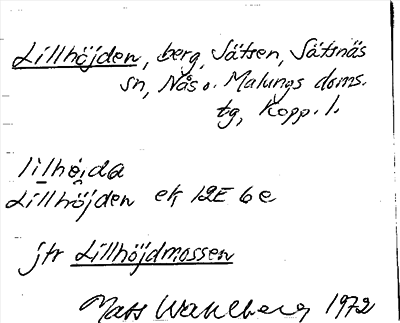 Lillhöjden, berg, Sätsen, Säfsnäs
sn, Nås o. Malungs doms.
tg, Kopp. l.
lìlhö̀ida
Lillhöjden ek 12E 6e
jfr Lillhöjdmossen
Mats Wahlberg 1972